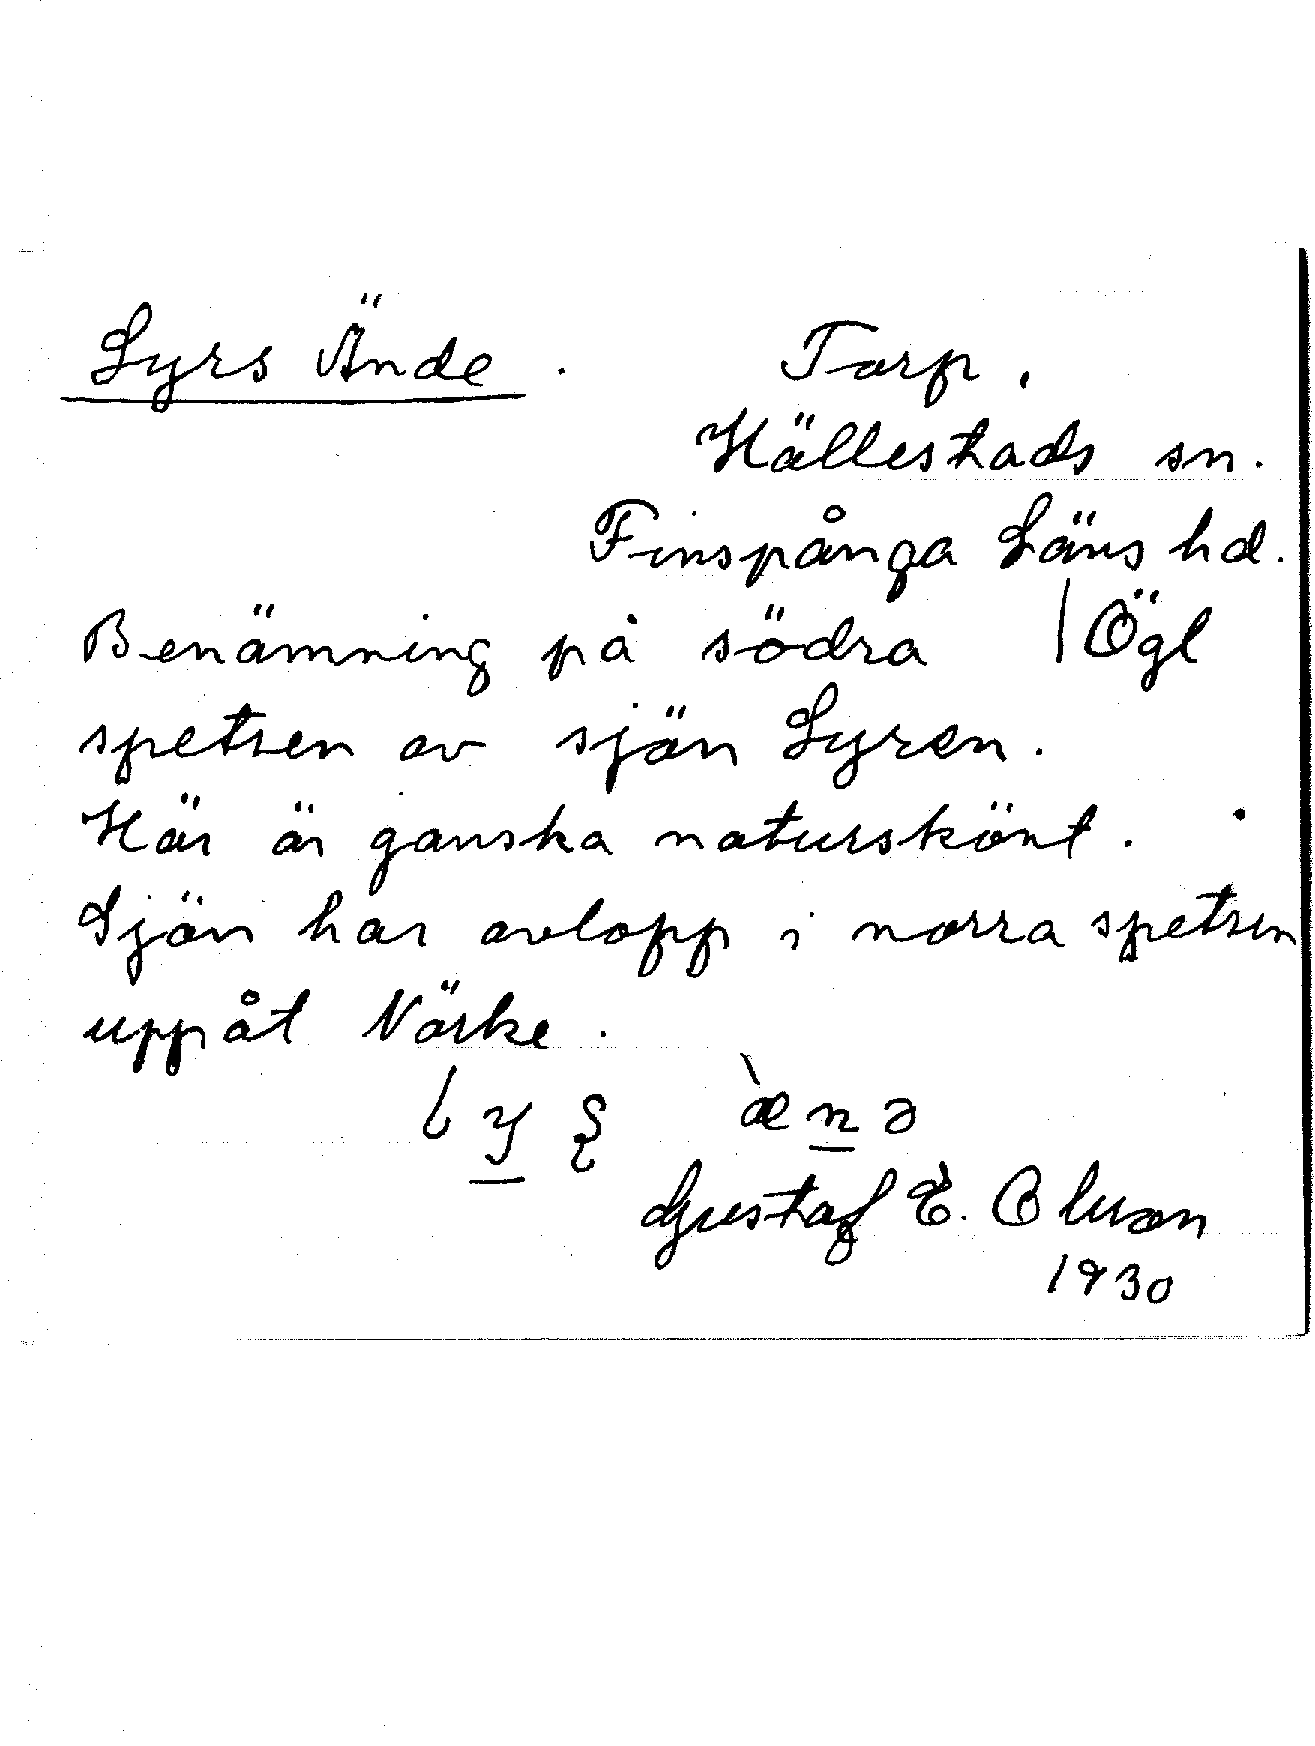 Lyrs Ände. Torp.
Hällestads sn.
Finspånga Läns hd.
Benämning på södra | Ögl
spetsen av sjön Lyren.
Här är ganska naturskönt.
Sjön har avlopp i norra spetsen
uppåt Närke.
ænə
Gustaf E. Olsson
1930